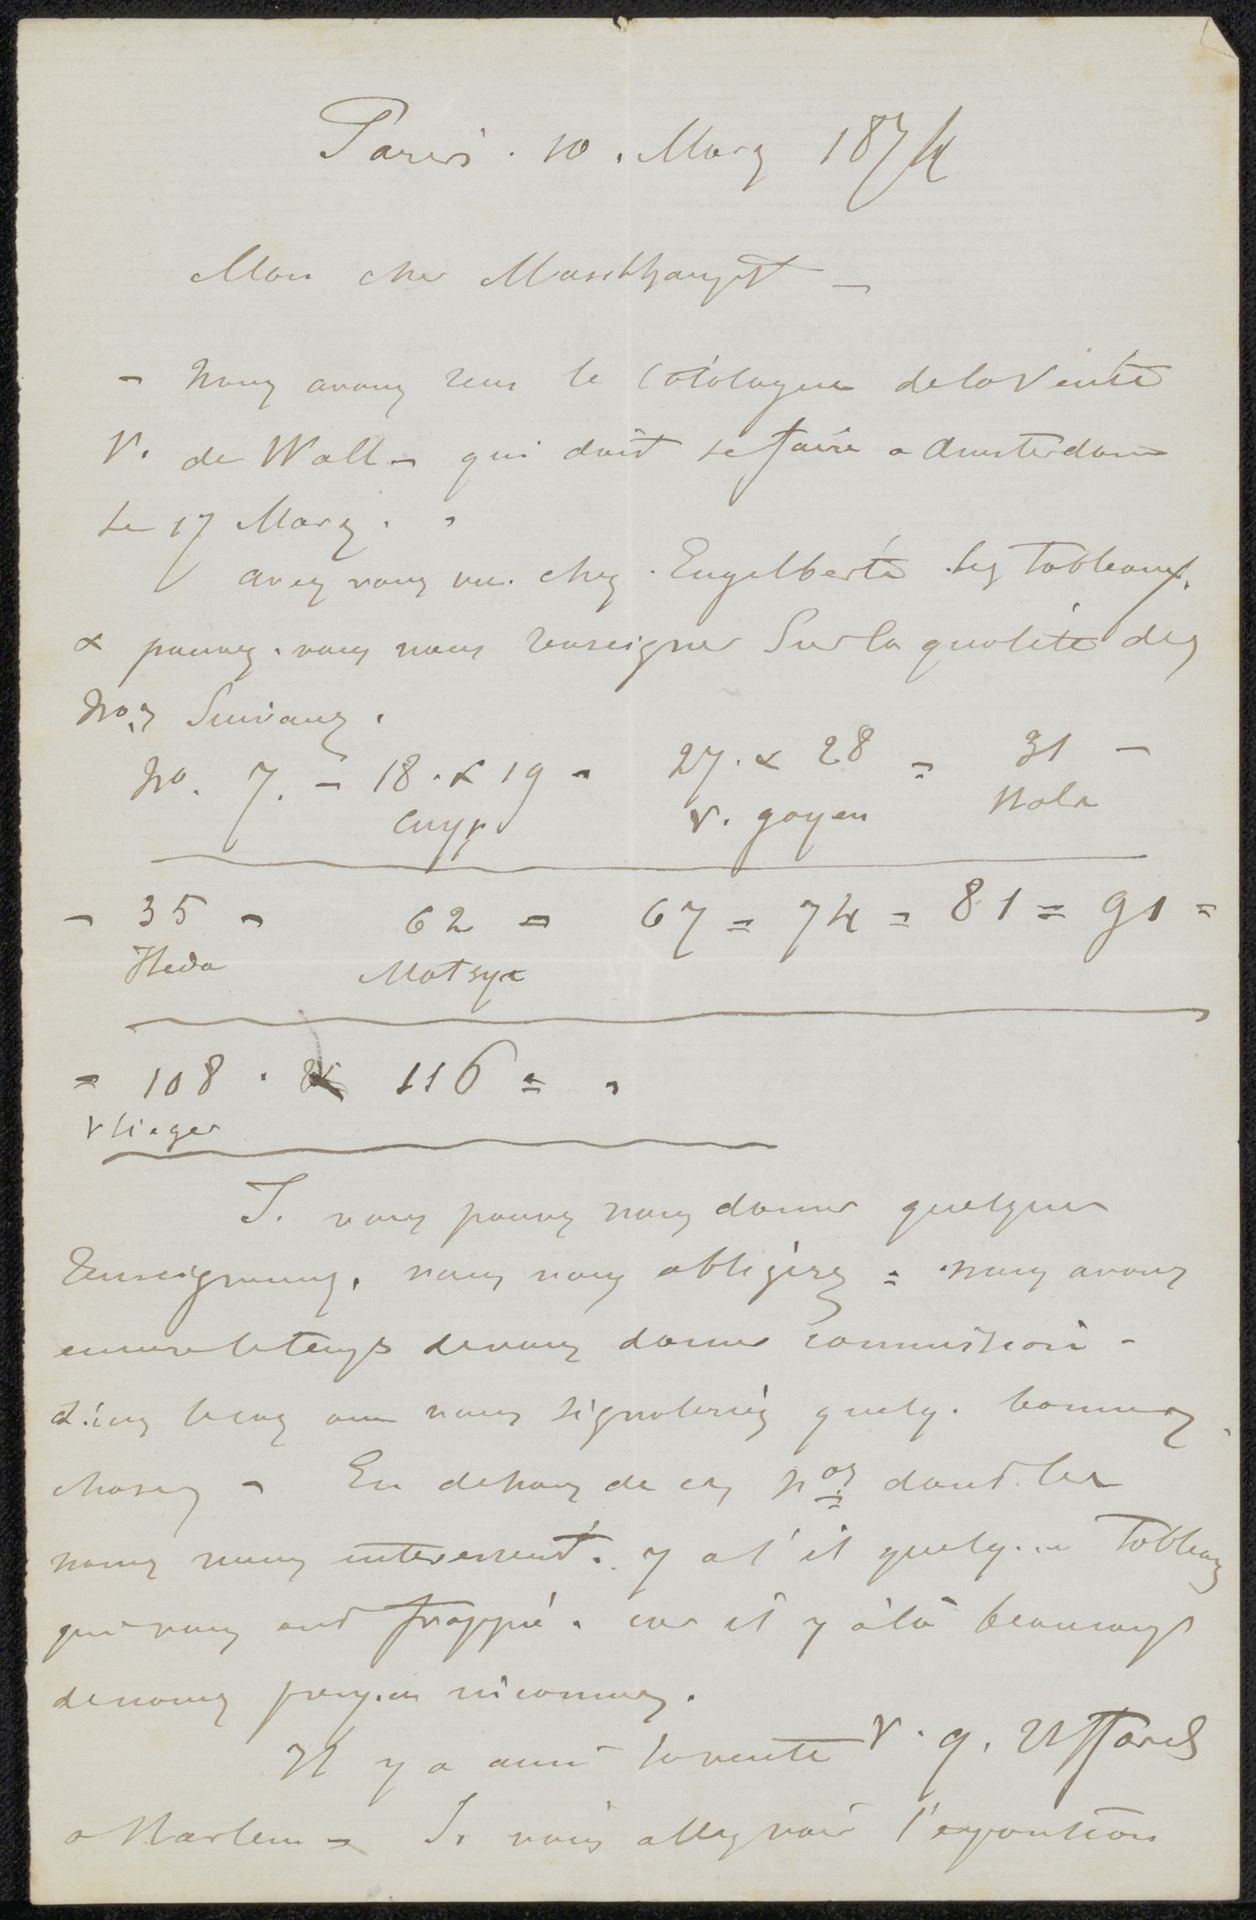 Paris. 10. Mars 1874
Mon cher Maschhaupt —
— Nous avons reçu le Catalogue de la Vente
V. de Wall — qui doit se faire a Amsterdam
le 17 Mars.
avez vous vu chez Engelberts les Tableaux.
& pouvez-vous nous renseigner Sur la qualité des
Nos Suivans.
No. 7. — 18. & 19 — 27. & 28 = 31 —
Cuyp v. goyen Hals
— 35 — 62 — 67 = 74 = 81 = 91 =
Heda Matsys
= 108 . 116 =
Vlieger
Si vous pouvez nous donner quelques
Renseignemens, vous nous obligerez = nous avons
encore le temps de vous donner commission —
vous nous signaleriez quelq. bonnes
choses — En dehors de ces Nos dont les
noms nous interessent. y a t'il quelques Tableaux
qui vous ont frappé. car il y a là beaucoup
de noms inconnus.
Il y a aussi la vente V. g. Uffards
a Harlem — Si vous allez voir l'exposition